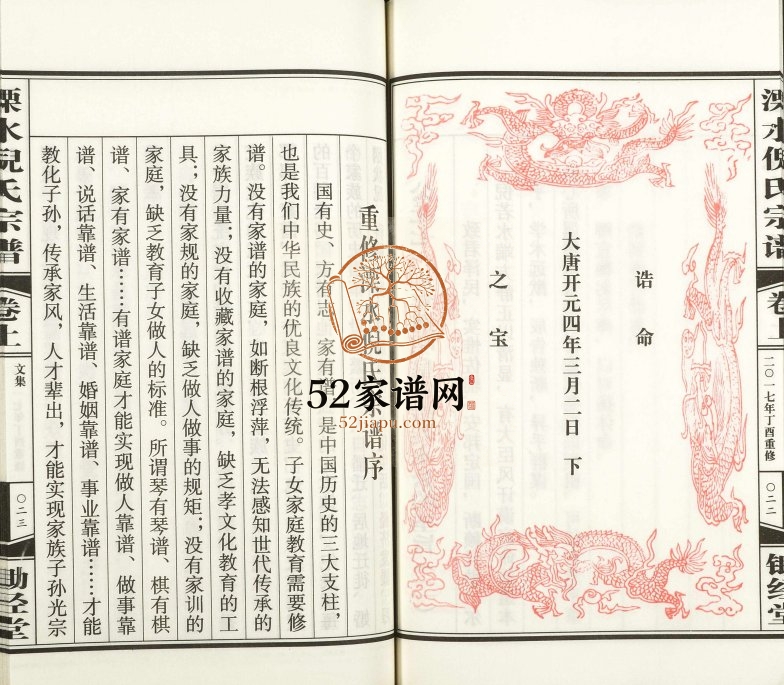 溧水倪氏宗谱
卷上
二〇一七年丁酉重修
〇二二
诰命
大唐开元四年三月二日 下
之宝
重修溧水倪氏宗谱序
国有史、方有志、家有谱,是中国历史的三大支柱,
也是我们中华民族的优良文化传统。子女家庭教育需要修
谱。没有家谱的家庭,如断根浮萍,无法感知世代传承的
家族力量;没有收藏家谱的家庭,缺乏孝文化教育的工
具;没有家规的家庭,缺乏做人做事的规矩;没有家训的
家庭,缺乏教育子女做人的标准。所谓琴有琴谱、棋有棋
谱、家有家谱……有谱家庭才能实现做人靠谱、做事靠
谱、说话靠谱、生活靠谱、婚姻靠谱、事业靠谱……才能
教化子孙,传承家风,人才辈出,才能实现家族子孙光宗
溧水倪氏宗谱
卷上
文集
〇二三
锄经堂
52家谱网
52jiapu.com